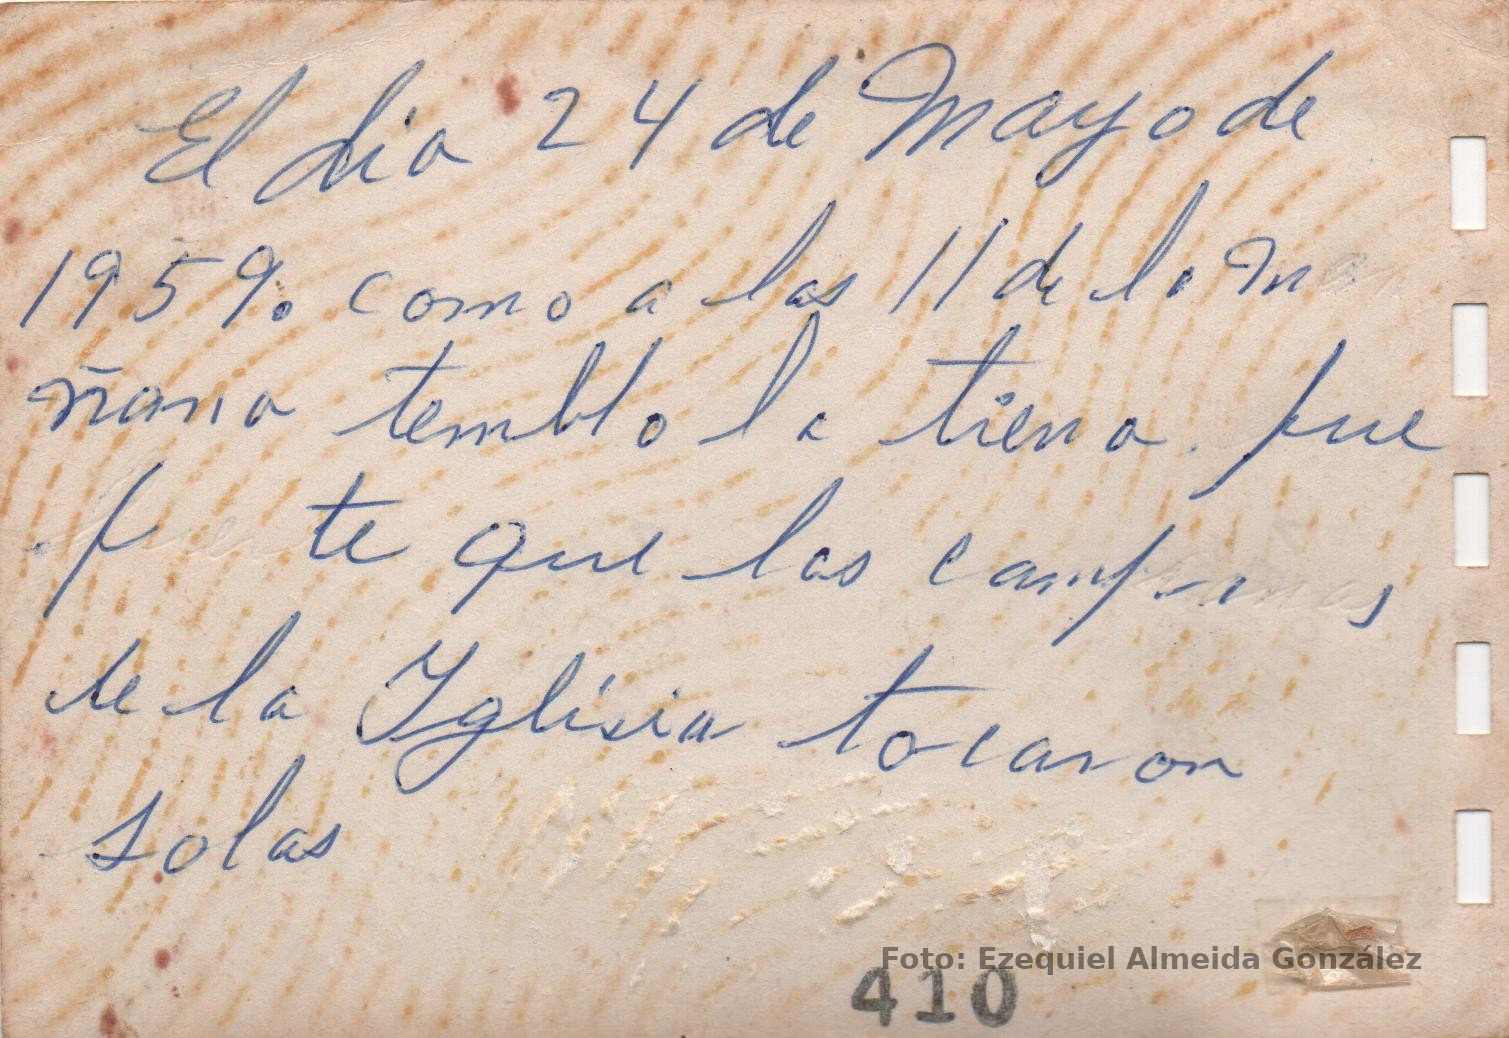 El dia 24 de Mayo de
1959. como a las 11 de la man
ñana temblo la tierra. fue
fuerte que las campanas
de la Iglisia tocaron
solas
Foto: Ezequiel Almeida González
410